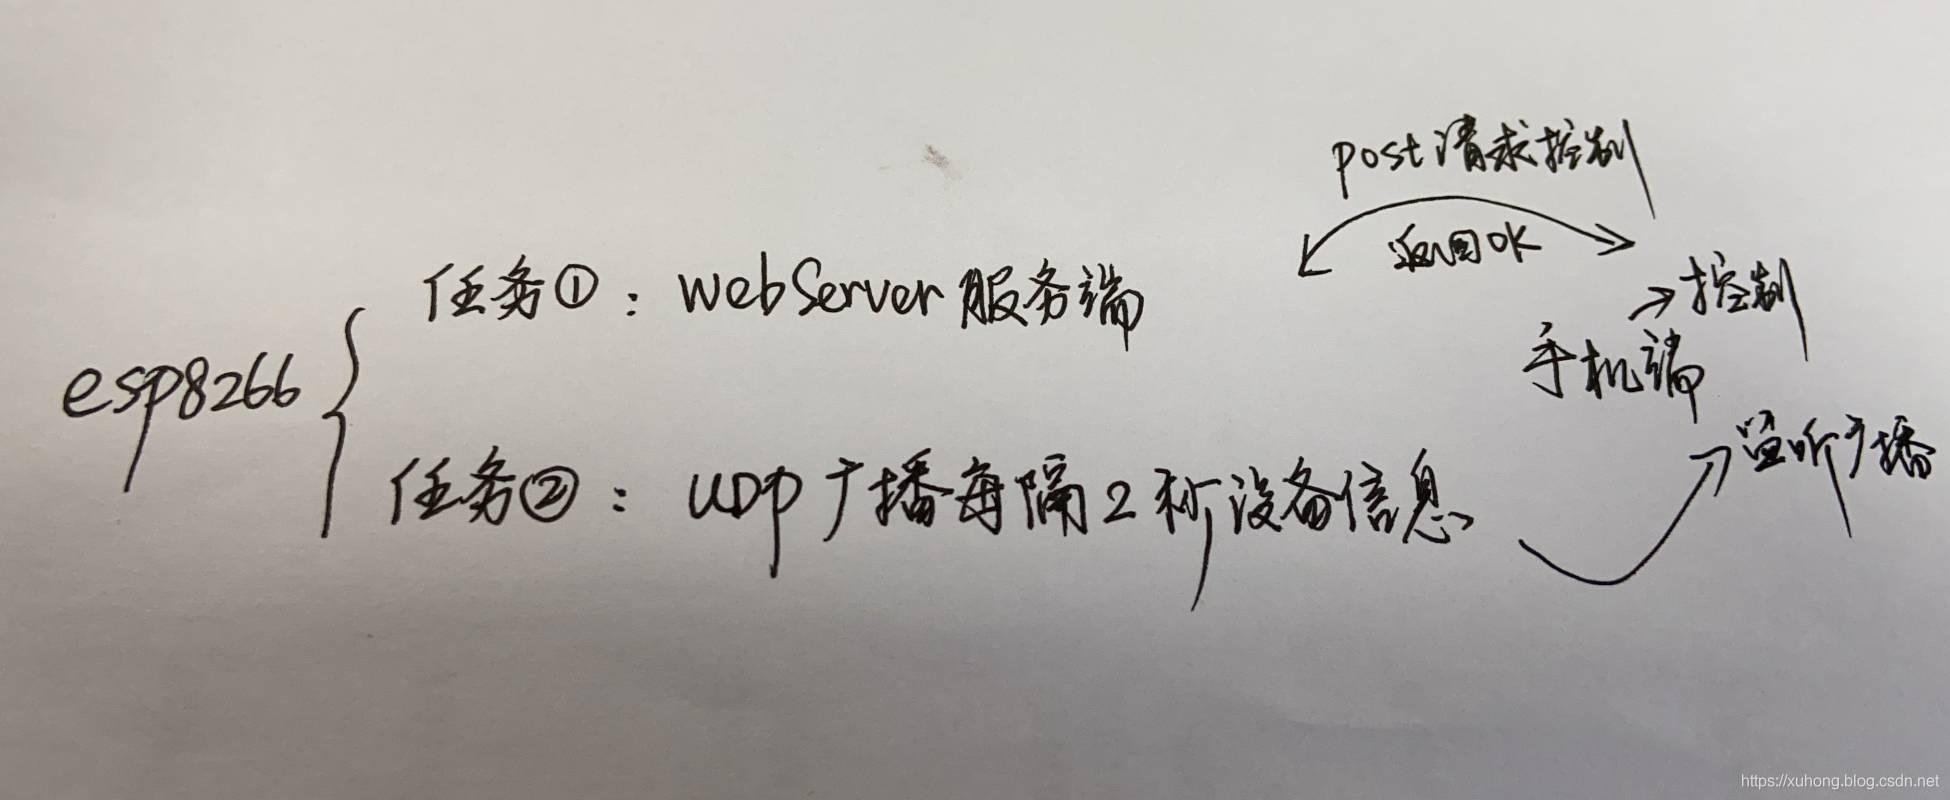 post请求控制
返回OK
任务①：webServer服务端
→控制
esp8266
手机端
监听广播
任务②：UDP广播每隔2秒设备信息
https://xuhong.blog.csdn.net